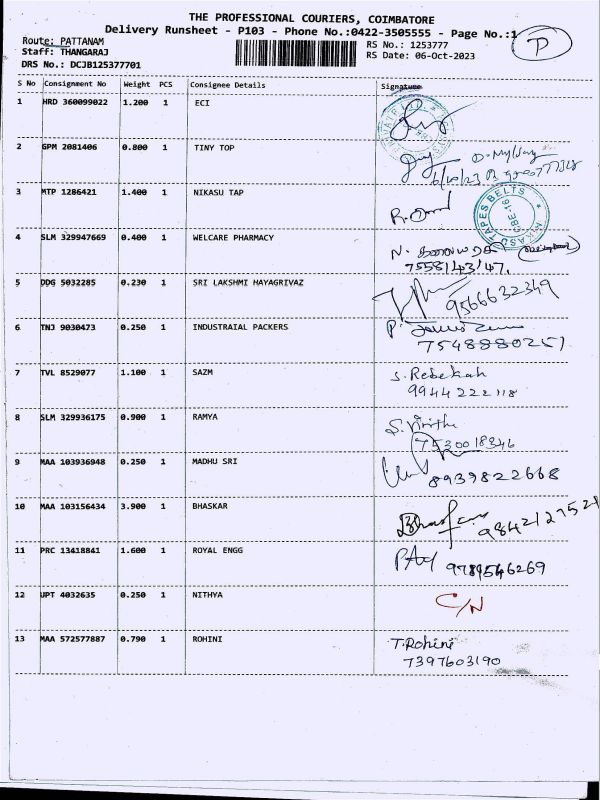 THE PROFESSIONAL COURIERS, COIMBATORE
Delivery Runsheet - P103 - Phone No.:0422-3505555 - Page No.:1
P
Route: PATTANAM
RS No.: 1253777
Staff: THANGARAJ
RS Date: 06-Oct-2023
DRS No.: DCJB125377701
S No Consignment No Weight PCS Consignee Details Signature
1 HRD 360099022 1.200 1 ECI
2 GPM 2081406 0.800 1 TINY TOP
6/10/23
3 MTP 1286421 1.400 1 NIKASU TAP
NIKASU TAPES BELTS
CBE-16
4 SLM 329947669 0.400 1 WELCARE PHARMACY
N.
7558143147.
5 DDG 5032285 0.230 1 SRI LAKSHMI HAYAGRIVAZ
9566632349
6 TNJ 9030473 0.250 1 INDUSTRAIAL PACKERS
P.
7548880251
7 TVL 8529077 1.100 1 SAZM
S. Rebekah
9944222118
8 SLM 329936175 0.900 1 RAMYA
7530018346
9 MAA 103936948 0.250 1 MADHU SRI
8939822668
10 MAA 103156434 3.900 1 BHASKAR
9842127521
11 PRC 13418841 1.600 1 ROYAL ENGG
9789546269
12 UPT 4032635 0.250 1 NITHYA
C/N
13 MAA 572577887 0.790 1 ROHINI
T.Rohini
7397603190